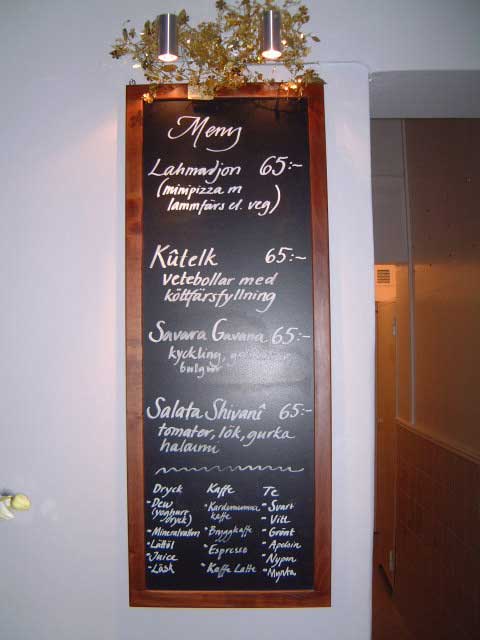 Meny
Lahmadjon 65:-
(minipizza m
lammfärs el. veg)
Kûtelk 65:-
vetebollar med
köttfärsfyllning
Savara Gavana 65:-
kyckling,
bulgur
Salata Shivanî 65:-
tomater, lök, gurka
haloumi
Dryck Kaffe Te
- Dew
(yoghurt
dryck)
- Mineralvatten
- Lättöl
- Juice
- Läsk
- Kardemumma
kaffe
- Bryggkaffe
- Espresso
- Kaffe Latte
- Svart
- Vitt
- Grönt
- Apelsin
- Nypon
- Mynta